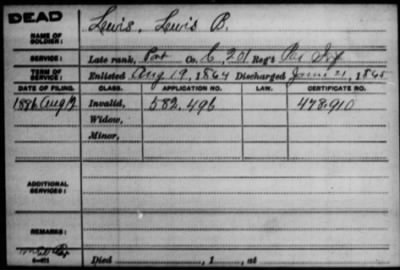 DEAD
NAME OF SOLDIER: Lewis, Lewis B.
SERVICE: Late rank, Co. C, 201 Reg't Pa Inf
TERM OF SERVICE: Enlisted Aug 19, 1864 Discharged June 21, 1865
DATE OF FILING. CLASS. APPLICATION NO. LAW. CERTIFICATE NO.
1886 Aug 12 Invalid, 582.496 478.910
Widow,
Minor,
ADDITIONAL SERVICES:
REMARKS:
Died , 1 , at